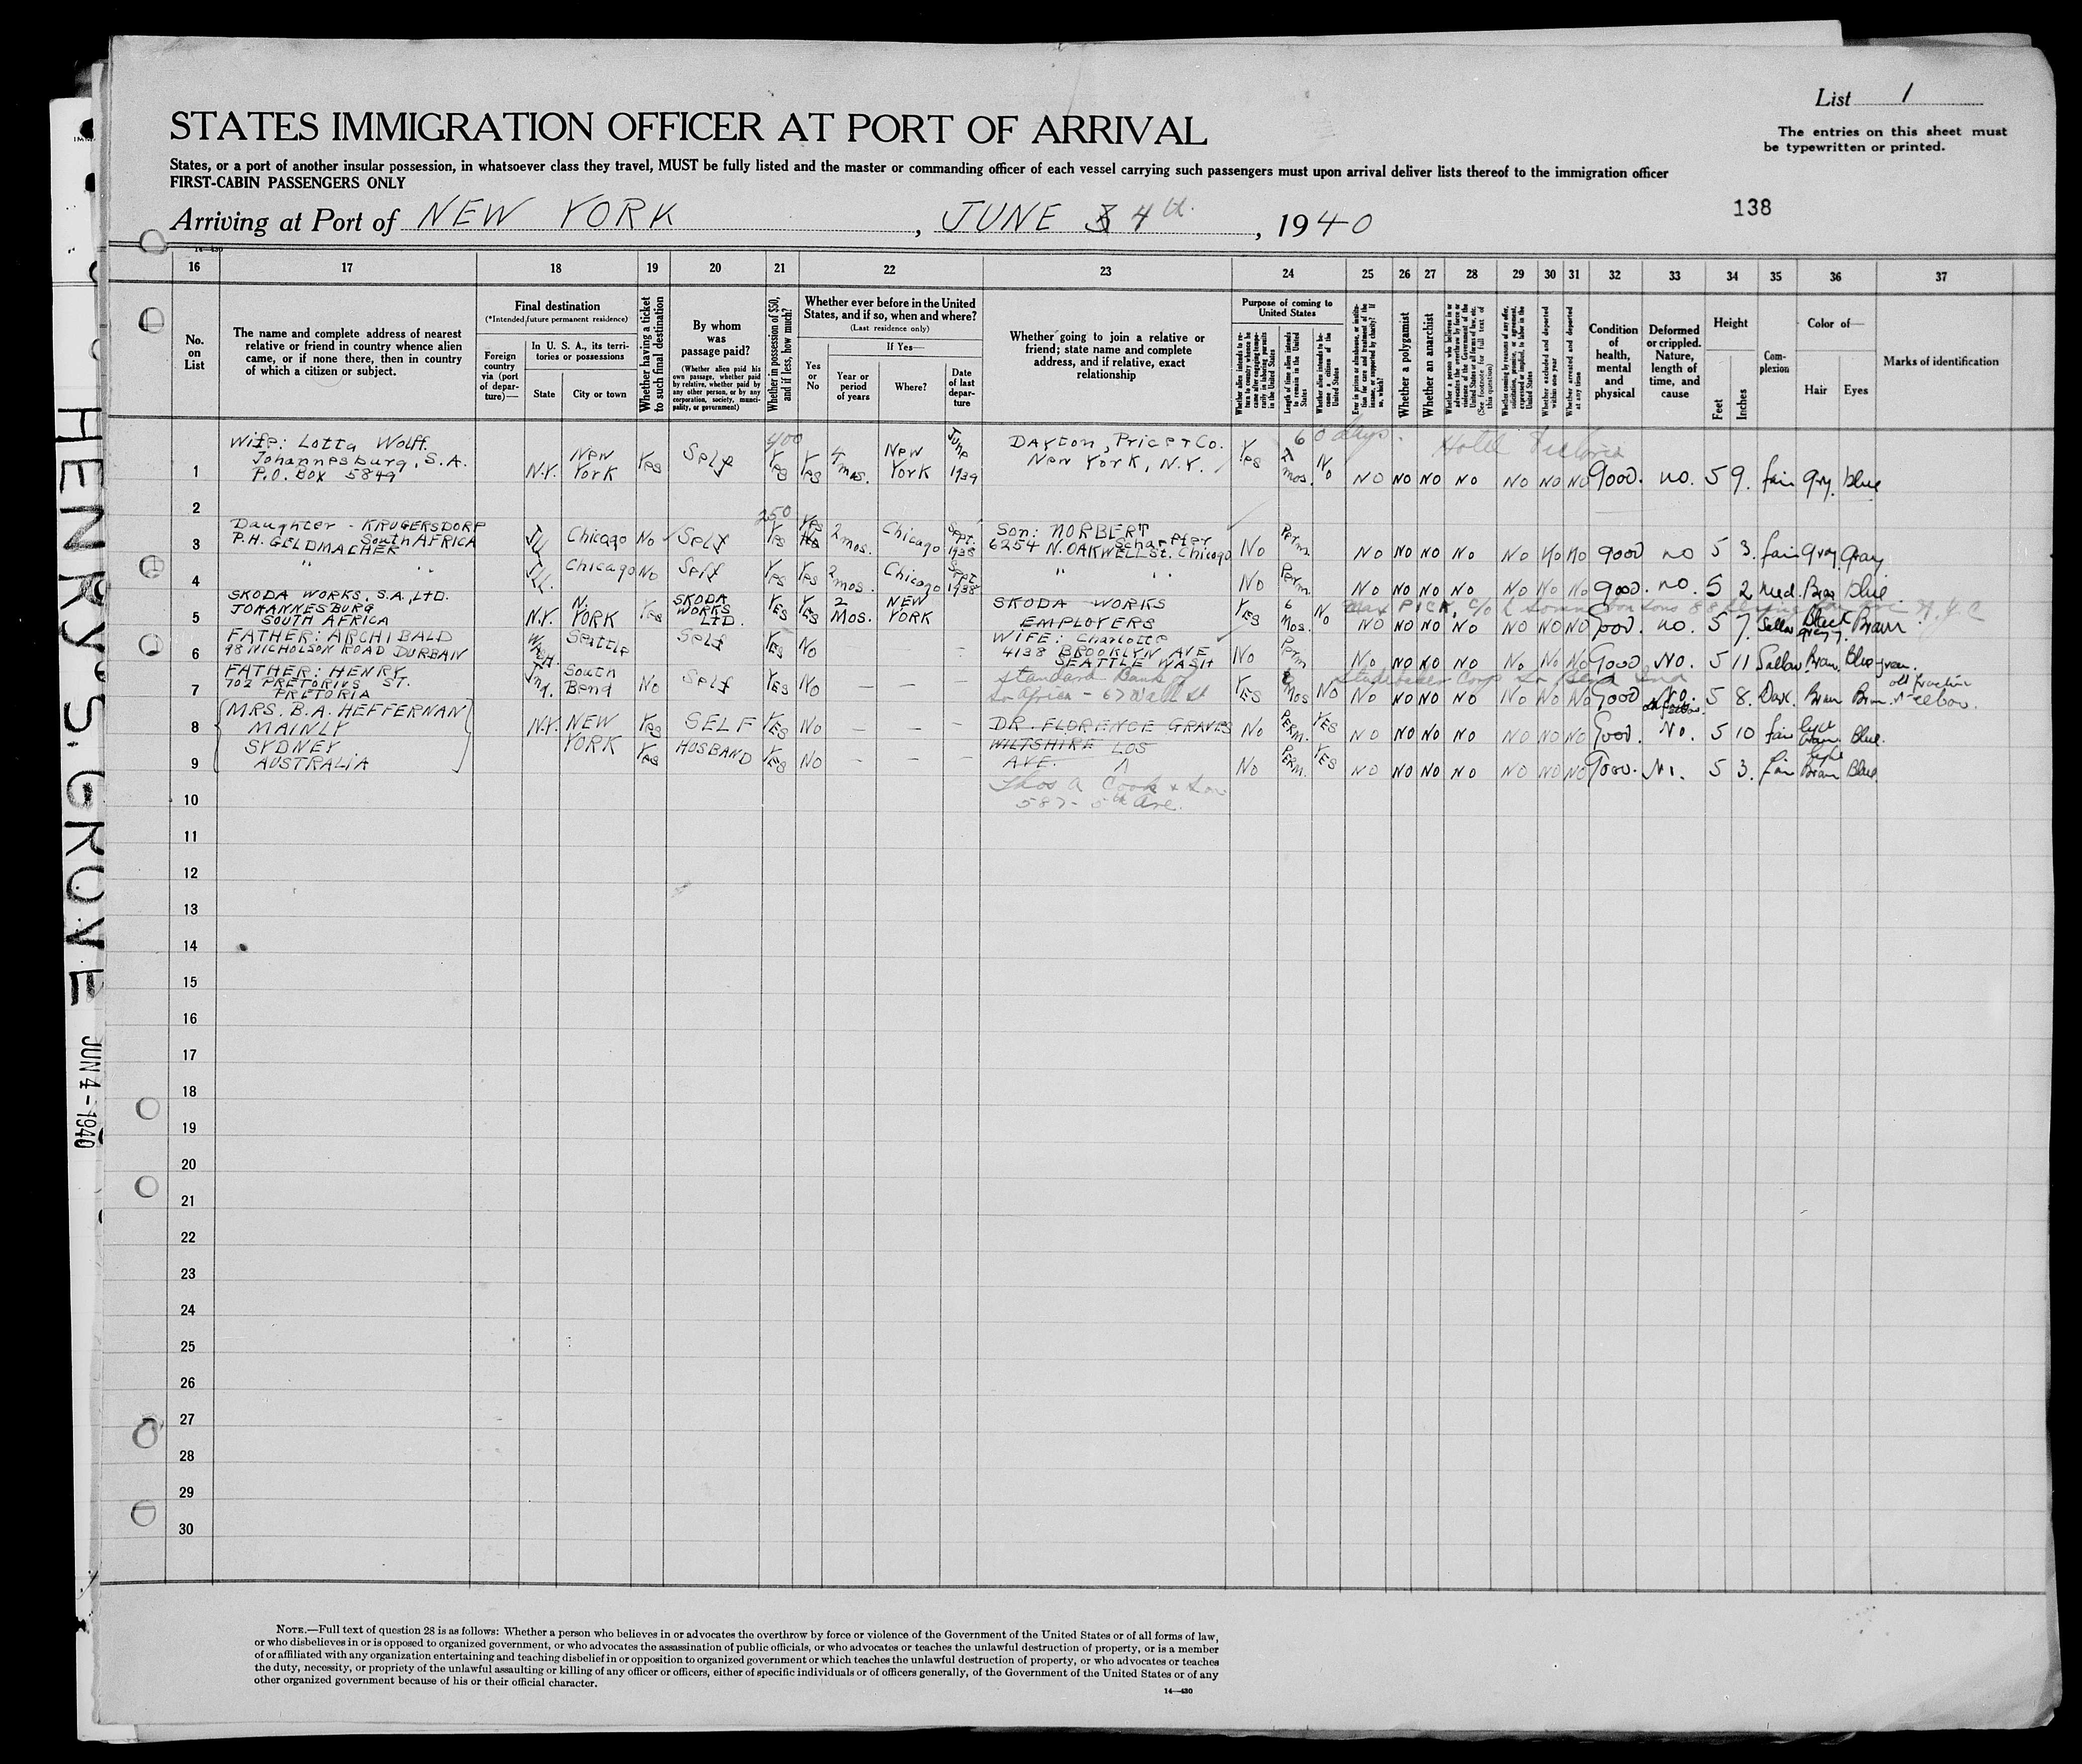 List 1
STATES IMMIGRATION OFFICER AT PORT OF ARRIVAL
The entries on this sheet must
be typewritten or printed.
States, or a port of another insular possession, in whatsoever class they travel, MUST be fully listed and the master or commanding officer of each vessel carrying such passengers must upon arrival deliver lists thereof to the immigration officer
FIRST-CABIN PASSENGERS ONLY
Arriving at Port of NEW YORK, JUNE 4th, 1940
138
14—430
16 17 18 19 20 21 22 23 24 25 26 27 28 29 30 31 32 33 34 35 36 37
No.
on
List
The name and complete address of nearest
relative or friend in country whence alien
came, or if none there, then in country
of which a citizen or subject.
Final destination
(*Intended future permanent residence)
Foreign
country
via (port
of depar-
ture)—
In U. S. A., its terri-
tories or possessions
State
City or town
Whether having a ticket
to such final destination
By whom
was
passage paid?
(Whether alien paid his
own passage, whether paid
by relative, whether paid by
any other person, or by any
corporation, society, munici-
pality, or government)
Whether in possession of $50,
and if less, how much?
Whether ever before in the United
States, and if so, when and where?
(Last residence only)
Yes
or
No
If Yes—
Year or
period
of years
Where?
Date
of last
depar-
ture
Whether going to join a relative or
friend; state name and complete
address, and if relative, exact
relationship
Purpose of coming to
United States
Length of time alien intends
to remain in the United
States
Whether alien intends to be-
come a citizen of the
United States
Whether a polygamist
Whether an anarchist
Whether excluded and deported
within one year
Whether arrested and deported
at any time
Condition
of
health,
mental
and
physical
Deformed
or crippled.
Nature,
length of
time, and
cause
Height
Feet
Inches
Com-
plexion
Color of—
Hair
Eyes
Marks of identification
1 Wife: Lotta Wolff.
Johannesburg, S.A.
P.O. Box 5849
N.Y. New York Yes Self 400 Yes Yes mos. New York June 1939
Dayton, Price & Co.
New York, N.Y.
Yes mos. No 60 days. Hotel
NO NO NO NO NO NO NO good. no. 5 9. fair gry. blue
2
3 Daughter - KRUGERSDORP
South AFRICA
P.H. GELDMACHER
Ill. Chicago No Self 250 Yes Yes 2 mos. Chicago Sept. 1938
Son: NORBERT
Scharpfer
6254 N. OAKWELL St. Chicago
No Perm. NO NO NO NO NO NO NO good no 5 3. fair gray gray
4 " "
Ill. Chicago No Self Yes Yes 2 mos. Chicago Sept. 1938 " "
No Perm. NO NO NO NO NO NO NO good. no. 5 2 med. Brn blue
5 SKODA WORKS, S.A., LTD.
JOHANNESBURG
SOUTH AFRICA
N.Y. N. YORK Yes SKODA WORKS LTD. YES YES 2 Mos. NEW YORK
SKODA WORKS
EMPLOYERS
YES 6 Mos. No Max PICK, c/o N.Y.C
NO NO NO NO NO NO NO good. no. 5 7. Black Brown
6 FATHER: ARCHIBALD
98 NICHOLSON ROAD DURBAN
WASH. Seattle Self YES NO —
WIFE: Charlotte
4138 BROOKLYN AVE
SEATTLE WASH
No Perm NO NO NO NO NO NO NO good No. 5 11 Sallow Brown. Blue-green.
7 FATHER: HENRY
702 PRETORIUS ST.
PRETORIA
Ind. South Bend No Self YES NO — — —
Standard Bank of
So Africa - 67 Wall St
YES Mos NO Studebaker Corp So Bend Ind
NO NO NO NO NO NO NO good No. 5 8. Dark. Brown Brn. old fracture elbow.
8 MRS. B.A. HEFFERNAN
MAINLY
N.Y. NEW YORK Yes SELF YES NO — — —
DR. FLORENCE GRAVES
No PERM. YES NO NO NO NO NO NO NO Good. No. 5 10 fair light brown Blue.
SYDNEY
9 AUSTRALIA
Yes HUSBAND YES NO — — —
WILTSHIRE LOS
AVE. A
No PERM. YES NO NO NO NO NO NO NO good. No. 5 3. fair light Brown Blue
Thos A Cook & Son
587 - 5th Ave.
10
11
12
13
14
15
16
17
18
19
20
21
22
23
24
25
26
27
28
29
30
NOTE.—Full text of question 28 is as follows: Whether a person who believes in or advocates the overthrow by force or violence of the Government of the United States or of all forms of law,
or who disbelieves in or is opposed to organized government, or who advocates the assassination of public officials, or who advocates or teaches the unlawful destruction of property, or is a member
of or affiliated with any organization entertaining and teaching disbelief in or opposition to organized government or which teaches the unlawful destruction of property, or who advocates or teaches
the duty, necessity, or propriety of the unlawful assaulting or killing of any officer or officers, either of specific individuals or of officers generally, of the Government of the United States or of any
other organized government because of his or their official character.
14—430
HENRY S. GROVE JUN 4 - 1940